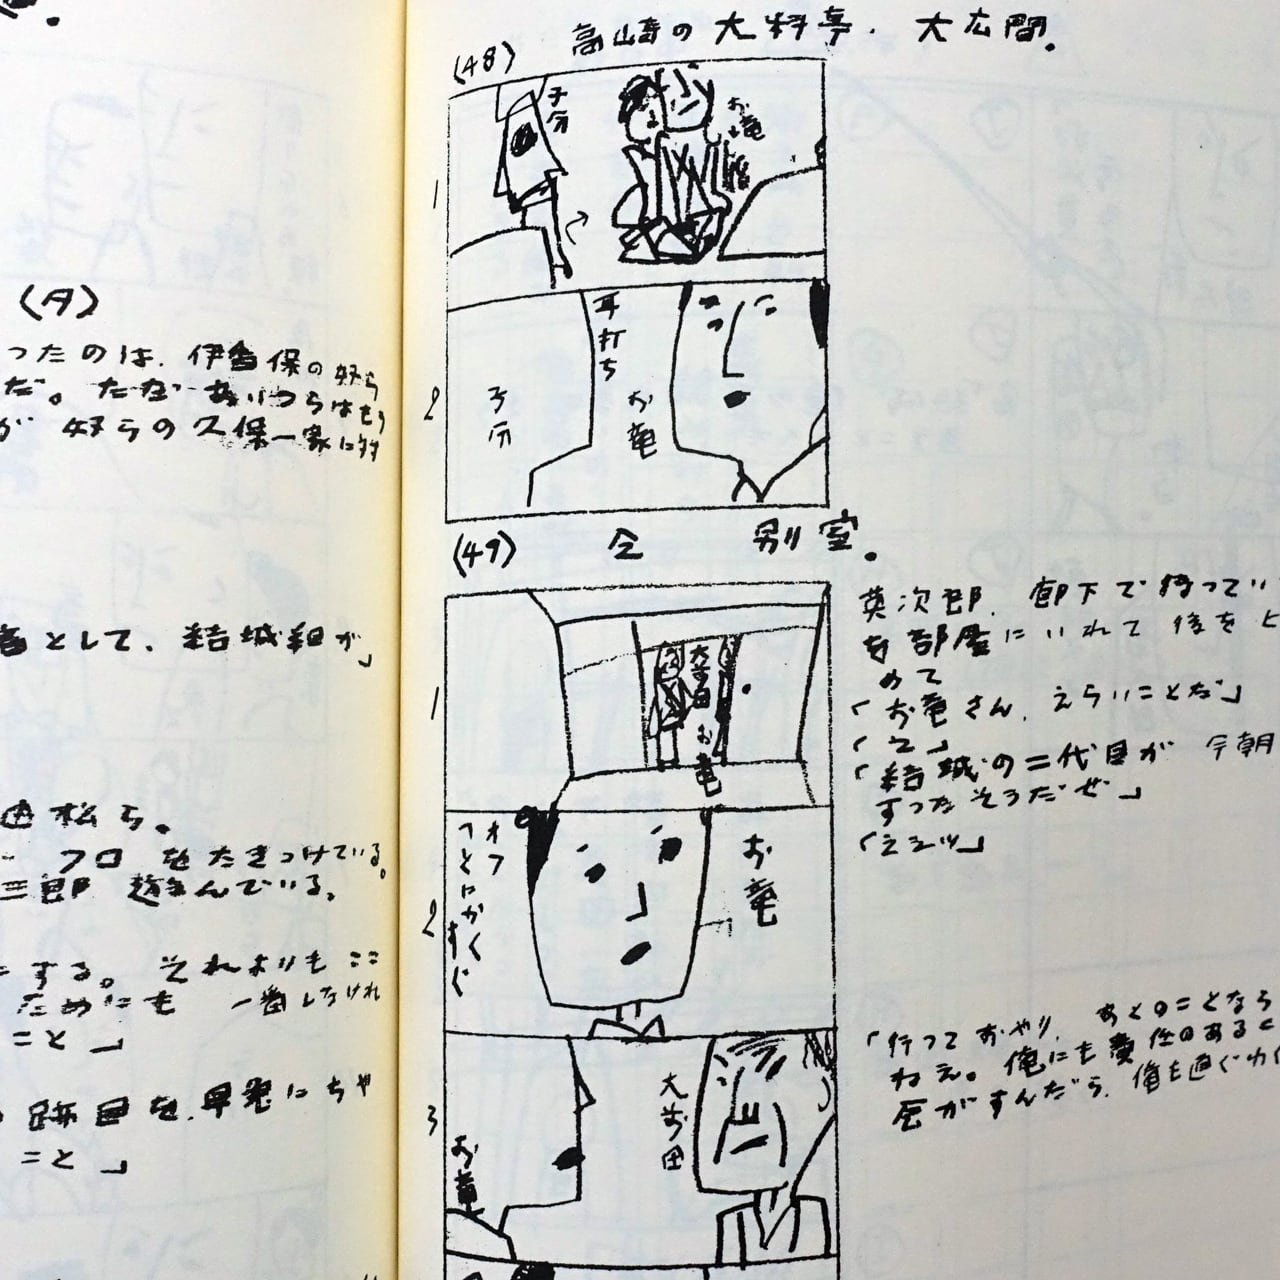 (夕)
ったのは、伊香保の奴ら
だ。ただ あいつらはもう
が 奴らの久保一家に対
として、結城組が」
松ら。
フロ をたきつけている。
三郎 遊んでいる。
する。それよりも ここ
ためにも 一番しなけれ
こと」
跡目を、早急にちゃ
こと」
(48) 高崎の大料亭、大広間。
1
子分
お竜
2
耳打ち
子分
お竜
(49) 仝 別室。
1
大前田
お竜
英次郎、廊下で待ってい
を部屋にいれて 後をと
めて
「お竜さん、えらいことだ」
「え」
「結城の二代目が 今朝
すったそうだぜ」
「ええッ」
2
オフ
へとにかく
すぐ
お竜
3
お竜
大前田
「行っておやり、あとのことなら
ねえ。俺にも責任のあるこ
会がすんだら、俺も直ぐかけ